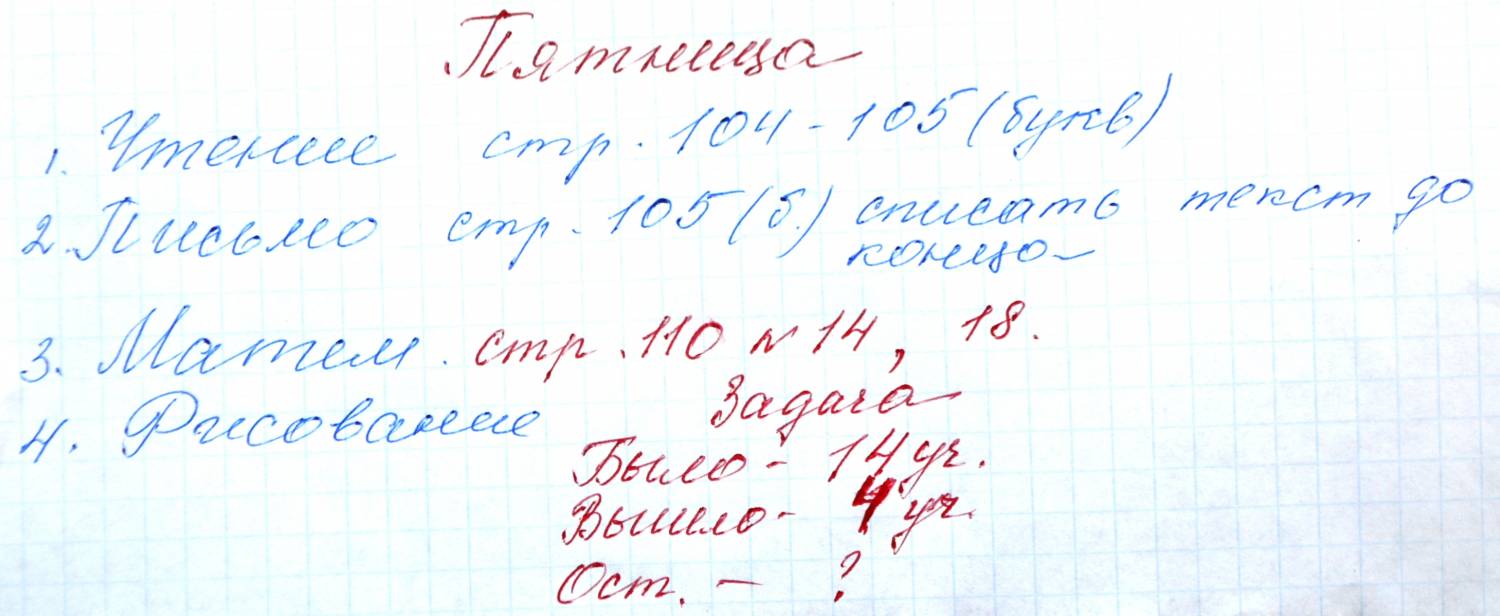 Пятница
1. Чтение стр. 104-105 (букв)
2. Письмо стр. 105 (б.) списать текст до
конца
3. Матем. стр. 110 № 14, 18.
4. Рисование
Задача
Было - 14 уч.
Вышло - 4 уч.
Ост. - ?